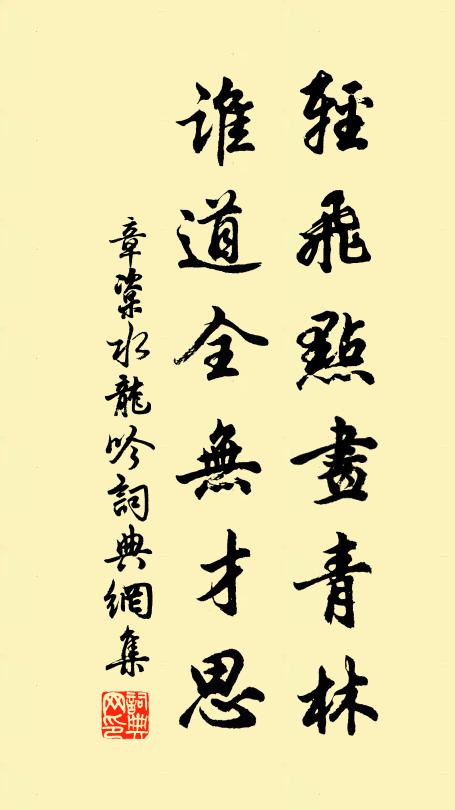 輕飛點畫青林
誰道全無才思
章楶水龍吟詞典網集
詞典
网印